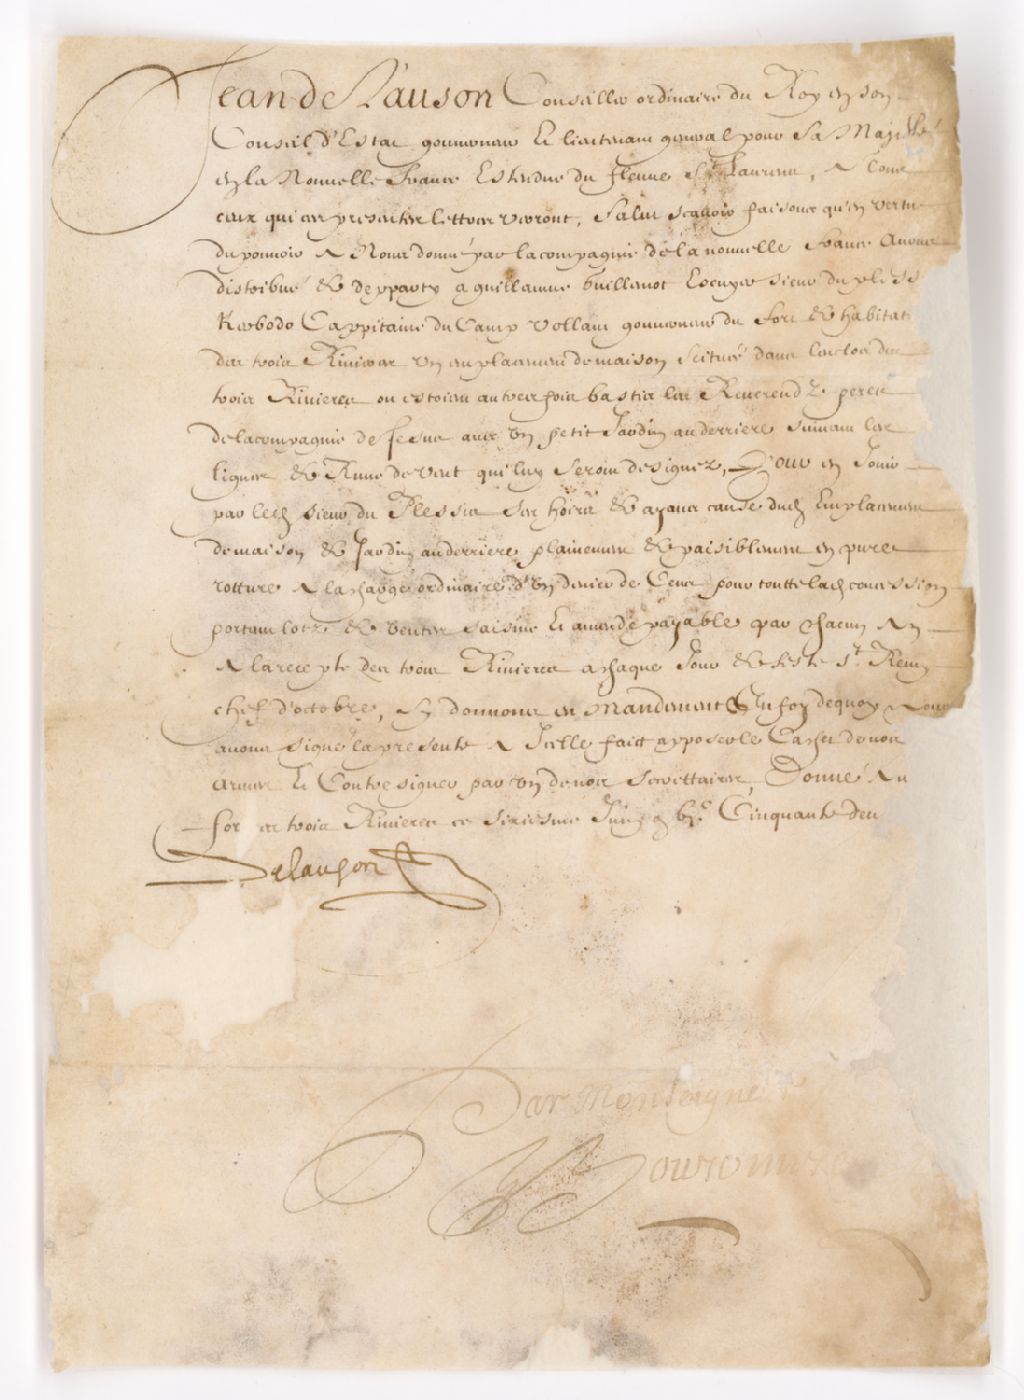 Jean de Lauson Conseiller ordinaire du Roy en son
Conseil d'Estat gouverneur & lieutenant general pour Sa Majesté
en la Nouvelle France Estendue du fleuve St Laurens, A tous
ceux qui ces presentes lettres verront, Salut sçavoir faisons qu'en vertu
du pouvoir A Nous donné par la compagnie de la nouvelle France Avons
distribué & departy a guillaume guillemot Escuyer sieur du pless
Kerbodo Cappitaine du Camp vollant gouverneur du fort & habitat
des trois Rivieres un emplacement de maison scitué dans l'enclos des
trois Rivieres ou estoient autresfois bastis les Reverendz peres
de la compagnie de Jesus avec un petit Jardin au derriere suivant les
lignes & Rune de vent qui luy seront designez, Pour en Jouir
par led. sieur du Plessis ses hoirs & ayans cause dud. Emplacement
de maison & Jardin au derriere plainement & paisiblement en pure
rotture A la charge ordinaire d'un denier de Cens pour toutte lad. concession
portant lotz & ventes saisine & amende payable par chacun An
A la recepte des trois Rivieres a chaque Jour & feste St. Remy
chef d'octobre, Sy donnons en mandement & En foy de quoy Nous
avons signé la presente A Icelle faict apposer le Cachet de nos
armes & Contresigner par un de nos Secrettaires, Donné Au
fort des trois Rivieres ce sixiesme Juin g bic. Cinquante deu
Delauson
Par Monseigneur
Rouer